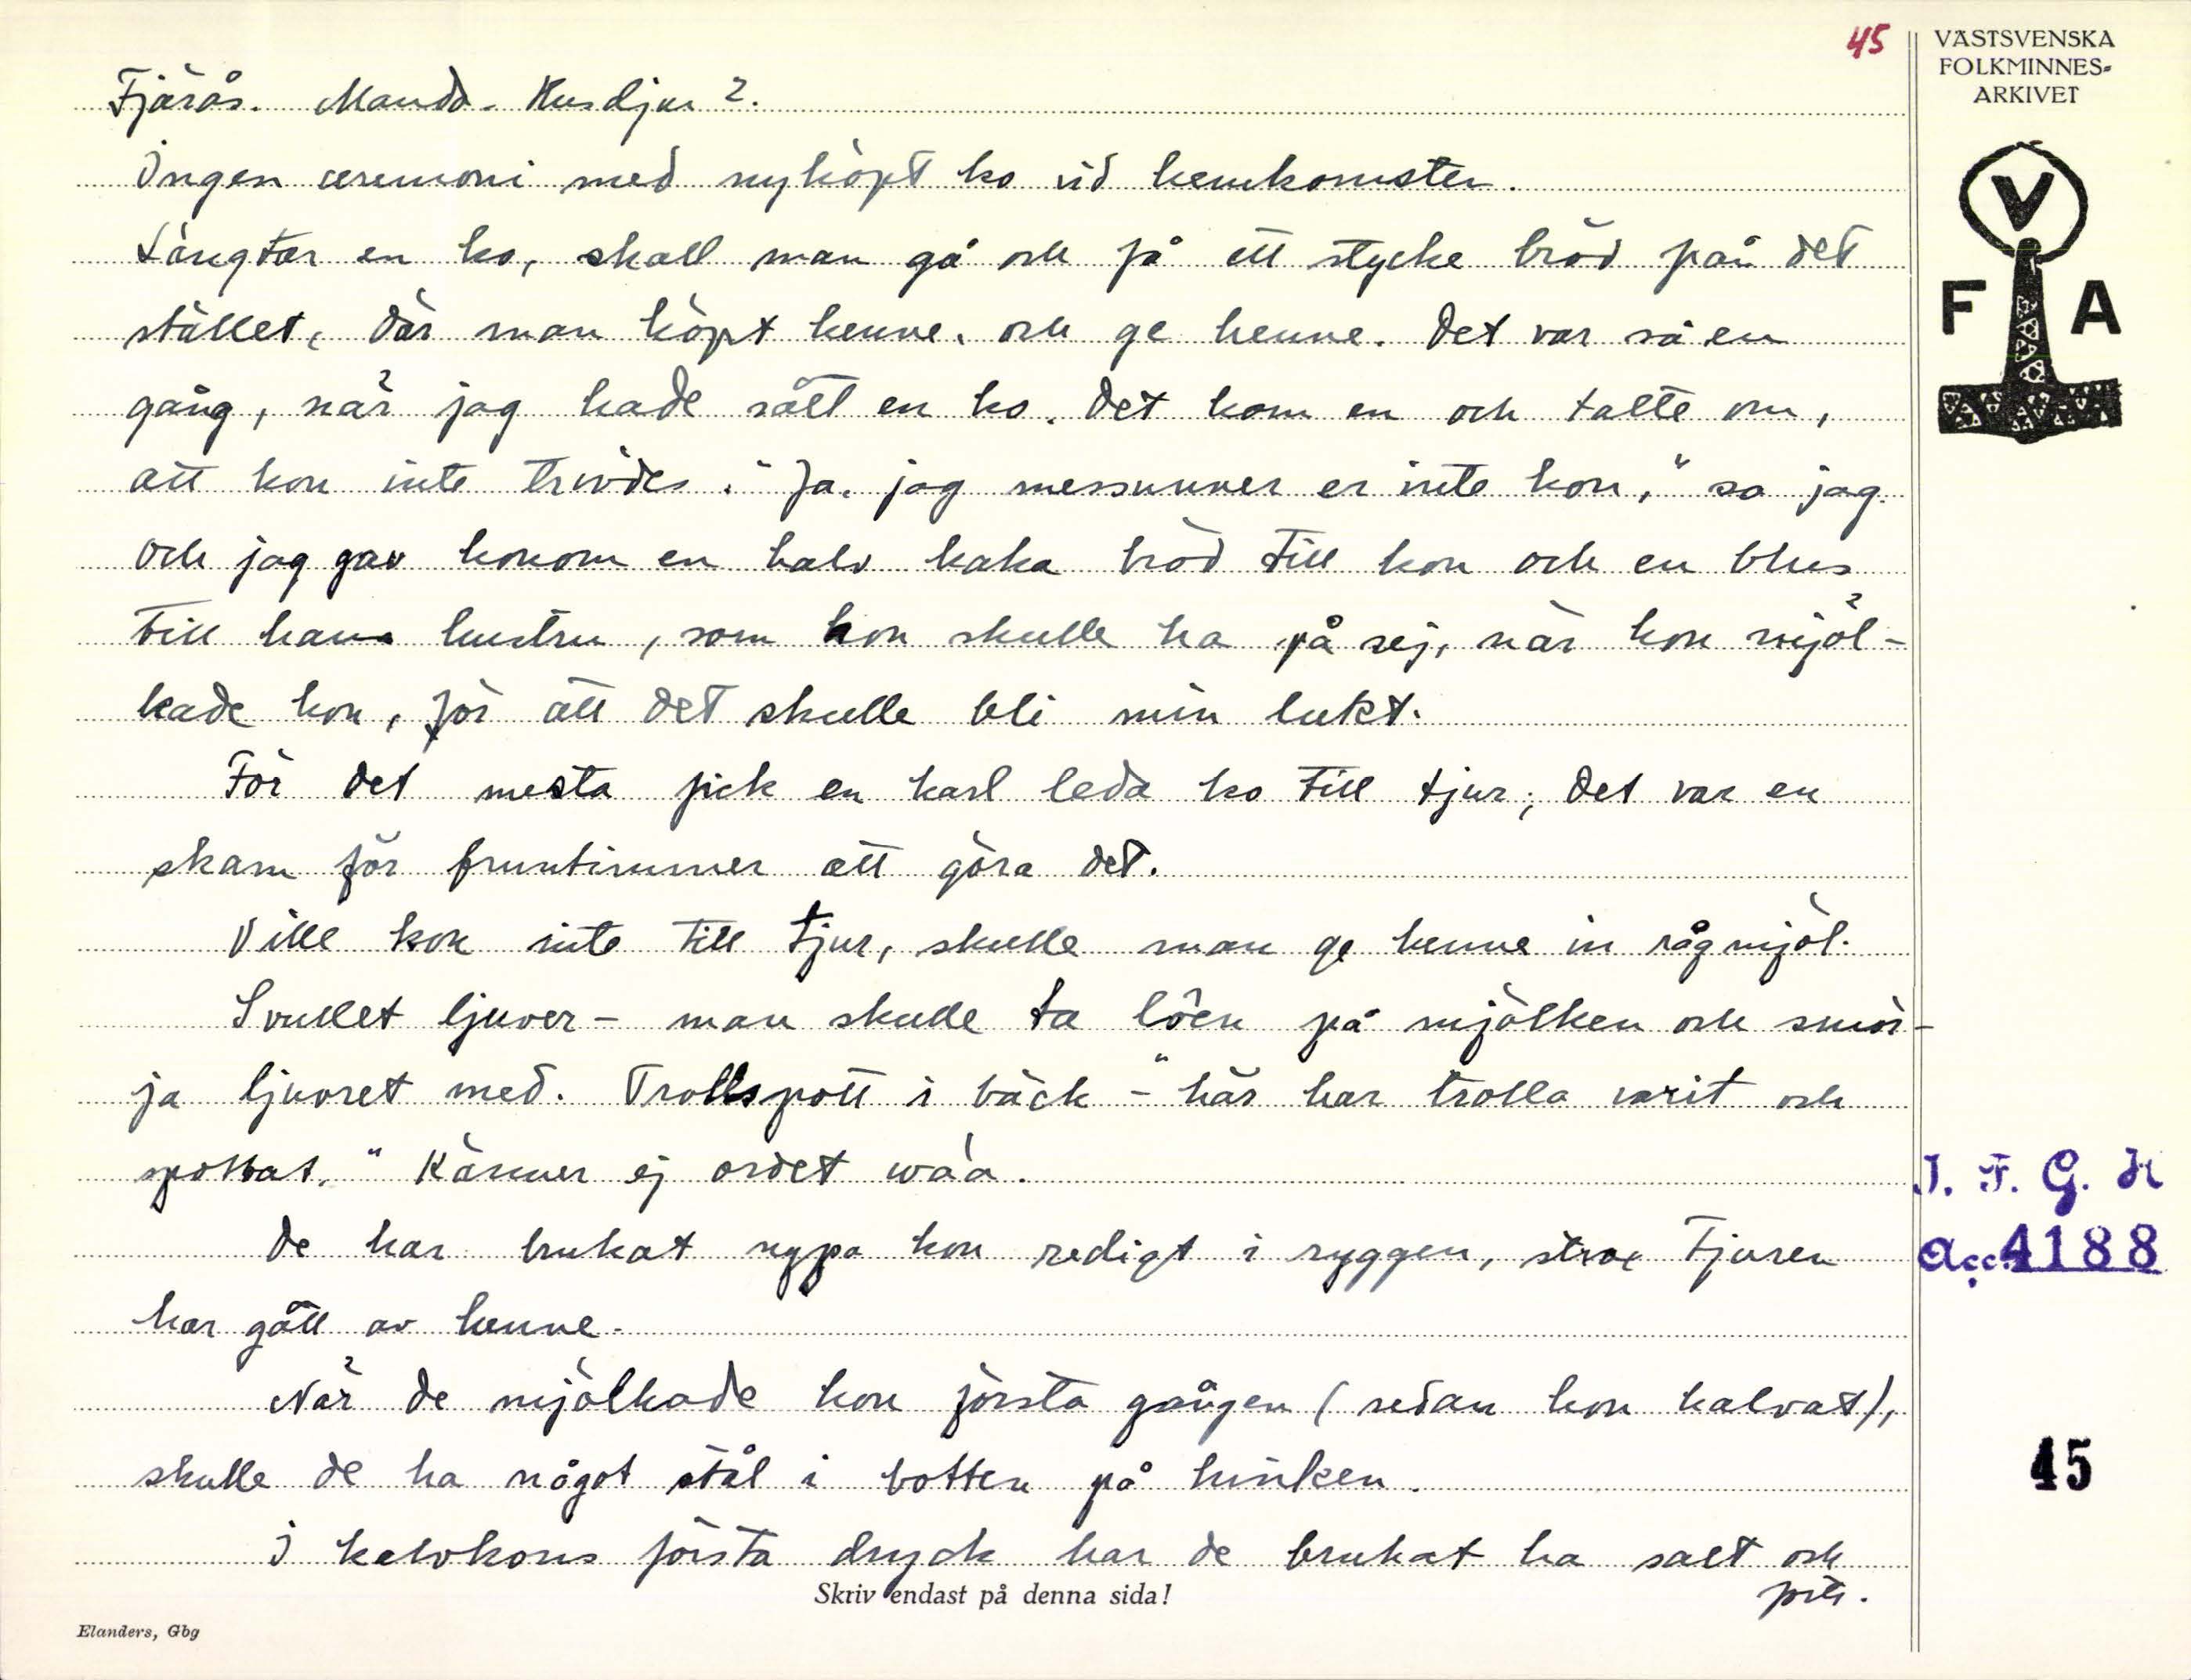 45
VÄSTSVENSKA
FOLKMINNES-
ARKIVET
V
F A
Fjärås. Husdjur 2.
Ingen ceremoni med nyköpt ko vid hemkomsten.
Längtar en ko, skall man gå och få ett stycke bröd från det
stället, där man köpt henne, och ge henne. Det var så en
gång, när jag hade sålt en ko. Det kom en och talte om,
att kon inte trivdes. "Ja, jag messunner er inte kon," sa jag.
Och jag gav honom en halv kaka bröd till kon och en blus
till hans hustru, som hon skulle ha på sej, när hon mjöl-
kade kon, för att det skulle bli min lukt.
För det mesta fick en karl leda ko till tjur; det var en
skam för fruntimmer att göra det.
Ville kon inte till tjur, skulle man ge henne in rågmjöl.
Svullet ljuver - man skulle ta löen på mjölken och smör-
ja ljuvret med. Trollspott i bäck - "här har trolla varit och
spottat." Känner ej ordet
De har brukat nypa kon redigt i ryggen, strax tjuren
har gått av henne.
När de mjölkade kon första gången (sedan hon kalvat),
skulle de ha något stål i botten på hinken.
I kalvkons första dryck har de brukat ha salt och
Skriv endast på denna sida!
Elanders, Gbg
I. F. G. H
Acc. 4188
45